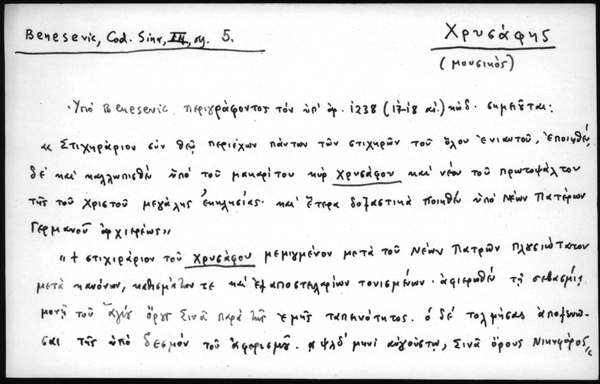 Beneševic, Cod. Sina, III, σημ. 5.
Χρυσάφης
(μουσικὸς)
Ὑπὸ Benesevic περιγράφοντος τὸν ὑπ' ἀρ. 1238 (17-18 αἰ.) κώδ. σημειοῦται:
« Στιχηράριον σὺν θεῷ περιέχων πάντων τῶν στιχηρῶν τοῦ ὅλου ἐνιαυτοῦ, ἐποιηθέν,
δὲ καὶ καλλωπισθὲν ὑπὸ τοῦ μακαρίτου κὺρ Χρυσάφου καὶ νέου τοῦ πρωτοψάλτου
τῆς τοῦ Χριστοῦ μεγάλης ἐκκλησίας· καὶ ἕτερα δοξαστικὰ ποιηθὲν ὑπὸ Νέων Πατέρων
Γερμανοῦ ἀρχιερέως»
« + στιχιράριον τοῦ Χρυσάφου μεμιγμένον μετὰ τοῦ Νέων Πατρῶν πλυσιώτατον
μετὰ κανόνων, καθισμάτων τε καὶ ἐξαποστειλαρίων τονισμένων· ἀφιερωθὲν τῇ σεβασμίᾳ
μονῇ τοῦ ἁγίου ὄρους Σινᾶ παρὰ τῆς ἐμῆς ταπεινότητος. ὁ δὲ τολμήσας ἀποξενῶ-
σαι τῆς ὑπὸ δεσμὸν τοῦ ἀφορισμοῦ. αψλδ' μηνὶ αὐγούστῳ, Σινᾶ ὄρους Νικηφόρος»